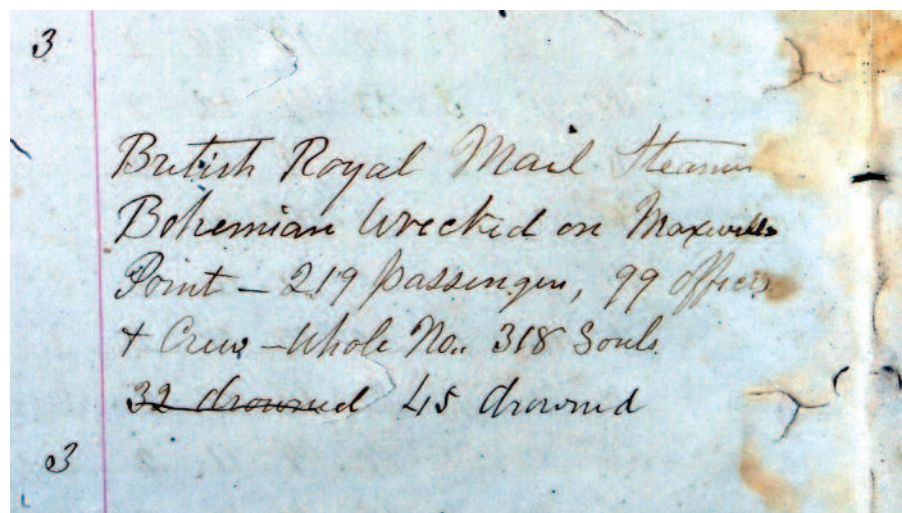 3
British Royal Mail Steamer
Bohemian Wrecked on Maxwells
Point - 219 passenger, 99 officers
+ Crew - Whole No. 318 Souls.
32 drowned 45 drowned
3